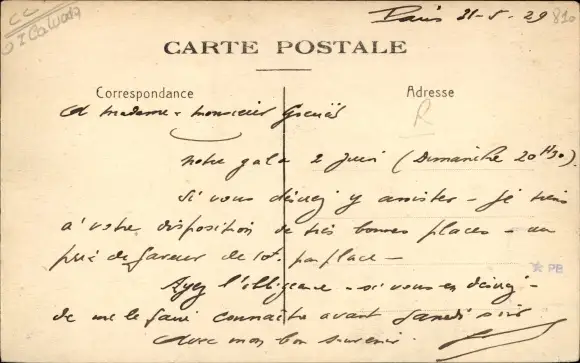 Paris 31-5-29
810
CARTE POSTALE
Correspondance
Adresse
R
A madame - monsieur
notre gala 2 juin (Dimanche 20H30).
si vous désirez y assister - je tiens
à votre disposition de très bonnes places - au
prix de faveur de 10f. par place -
Ayez l'obligeance - si vous en désirez -
de me le faire connaître avant samedi soir
Avec mon bon souvenir.
PB